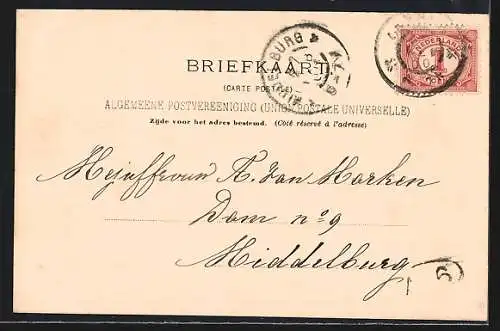 BRIEFKAART
(CARTE POSTALE)
NEDERLAND
ALGEMEENE POSTVEREENIGING (UNION POSTALE UNIVERSELLE)
Zijde voor het adres bestemd. (Côté réservé à l'adresse)
Mejuffrouw A. van Marken
Dam nº 9
Middelburg